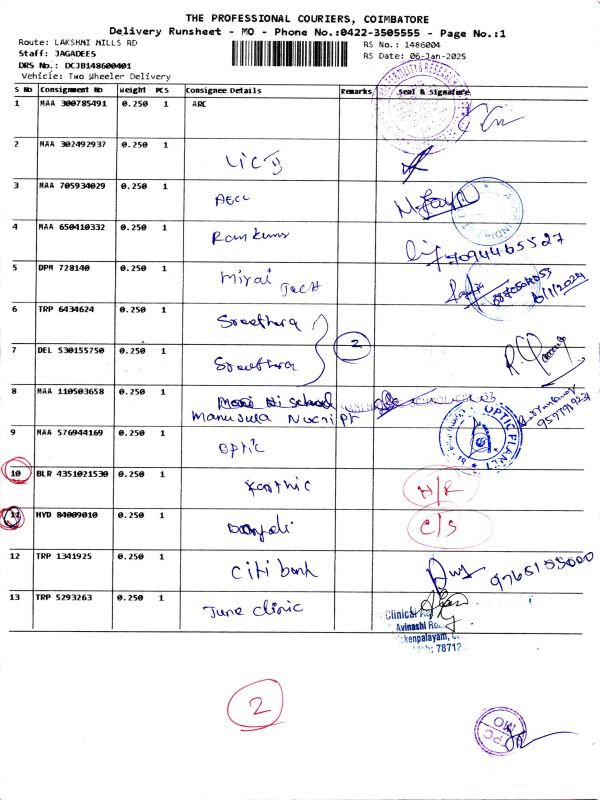 THE PROFESSIONAL COURIERS, COIMBATORE
Delivery Runsheet - MO - Phone No.:0422-3505555 - Page No.:1
Route: LAKSHMI MILLS RD
RS No.: 1486004
Staff: JAGADEES
RS Date: 06-Jan-2025
DRS No.: DCJB148600401
Vehicle: Two Wheeler Delivery
S No Consignment No Weight PCS Consignee Details Remarks Seal & Signature
1 MAA 300785491 0.250 1 ARC
2 MAA 302492937 0.250 1
LIC
3 MAA 705934029 0.250 1
AECC
4 MAA 650410332 0.250 1
Ramkums 7094465527
5 DPM 728140 0.250 1
Mirai Tech
6 TRP 6434624 0.250 1
Sreethara
2
7 DEL 530155750 0.250 1
Sreethara
8 MAA 110503658 0.250 1
Manjula
9 MAA 576944169 0.250 1
Optic
OPTIC PLANET
10 BLR 4351021530 0.250 1
Karthic
H/R
11 HYD 84009010 0.250 1
C/S
12 TRP 1341925 0.250 1
Citi bank 9765155000
13 TRP 5293263 0.250 1
June clinic
Clinical
Avinashi
78712
2
TPC
MO